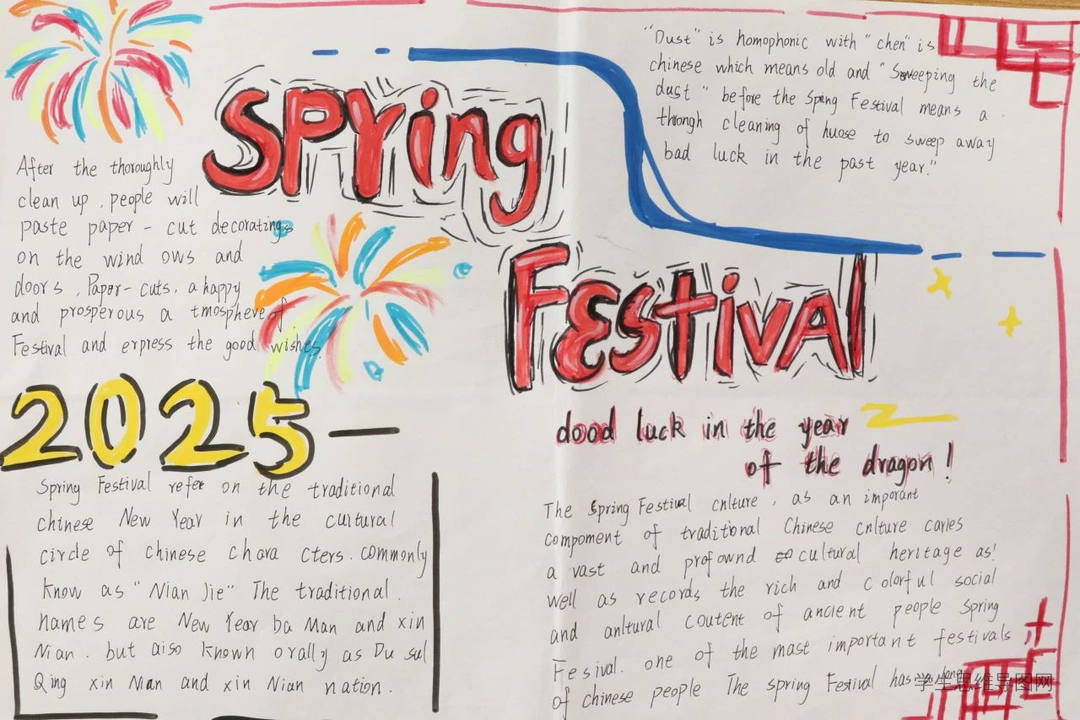 Spring
Festival
"Dust" is homophonic with "chen" is
chinese which means old and "Sweeping the
dust" before the Spring Festival means a
through cleaning of huose to sweep away
bad luck in the past year."
After the thoroughly
clean up , people will
paste paper - cut decoratings
on the wind ows and
doors , Paper-cuts, a happy
and prosperous a tmosphere of
Festival and express the good wishes
2025—
Spring Festival refer on the traditional
chinese New Year in the cultural
circle of chinese chara cters. commonly
know as "Nian Jie" The traditional
names are New Year ba Man and xin
Nian. but aiso known orally as Du sul
Qing xin Nian and xin Nian nation.
dood luck in the year
of the dragon!
The Spring Festival cnlture , as an imporant
compoment of traditional Chinese cnlture caries
a vast and profownd cultural heritage as
well as records the rich and colorful social
and anltural coutent of ancient people Spring
Fesival. one of the mast important festivals ,
of chinese people The spring Festival has
学生思维导图网